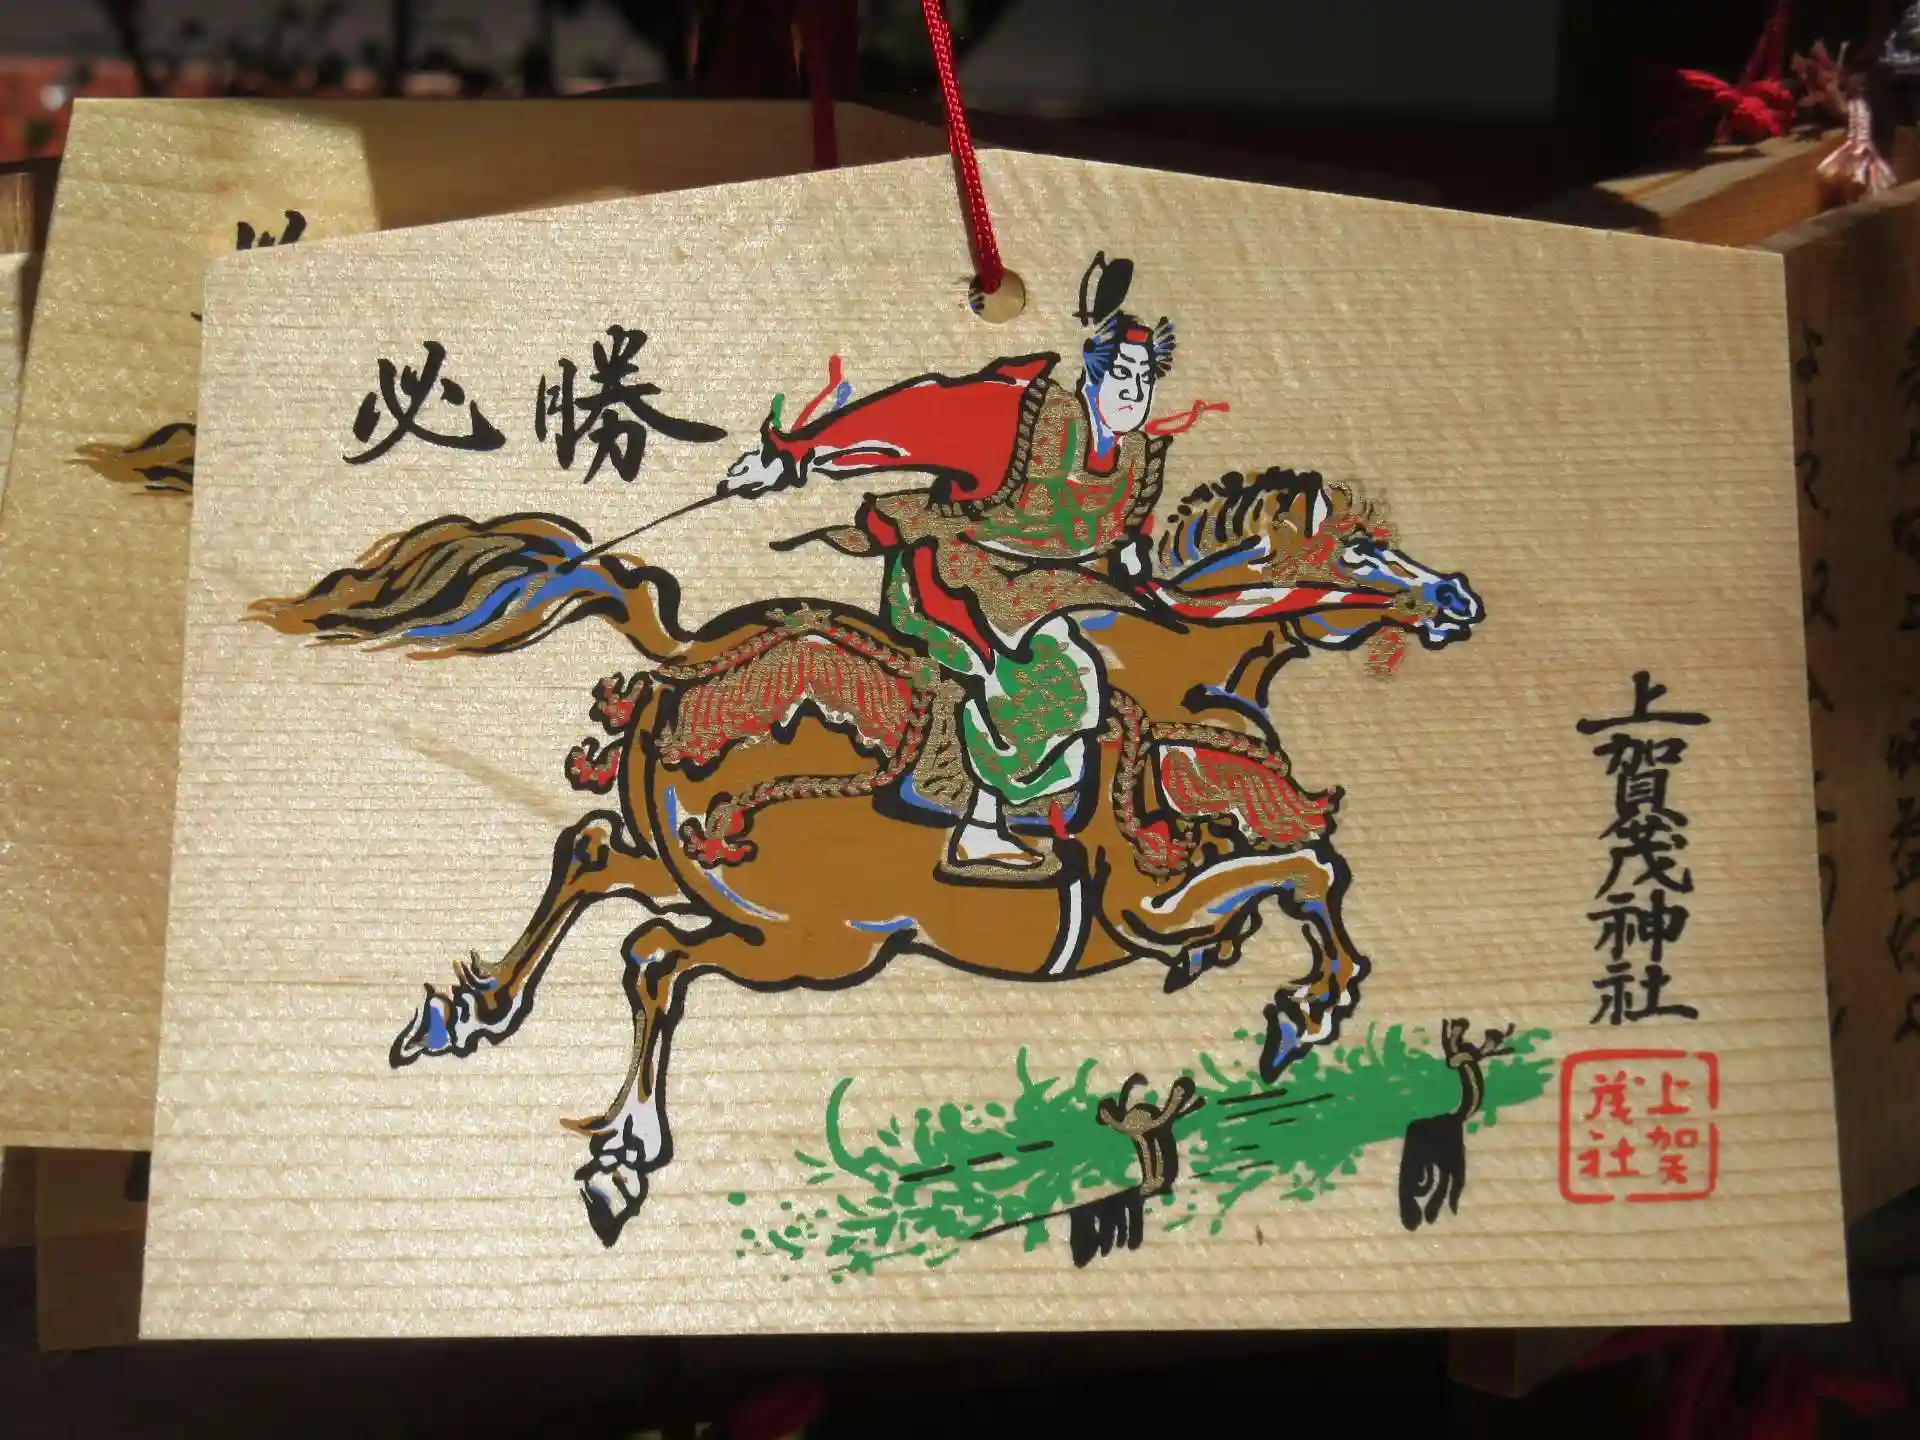 必勝
上賀茂神社
上賀
茂社